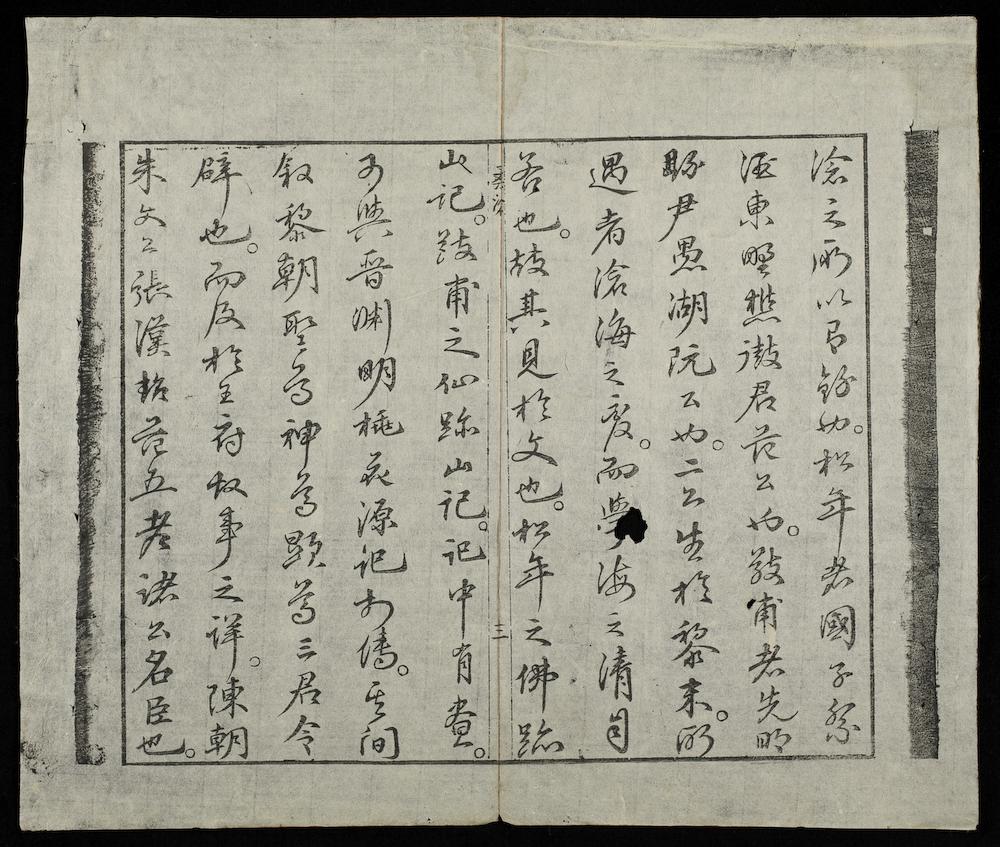 滄之所以有錄也。松年者國子祭
酒東野樵君范公也。敬甫者先明
縣尹愚湖阮公也。二公生於黎末。所
遇者滄海之變。而學海之清自
若也。故其見於文也。松年之佛跡
桑滄
三
山記。敬甫之仙跡山記。記中有畫。
可與晉淵明桃花源記傳。其間
敘黎朝聖為神為顯為三君令
辟也。而及於王府故事之詳。陳朝
朱文公張漢超范五老諸公名臣也。